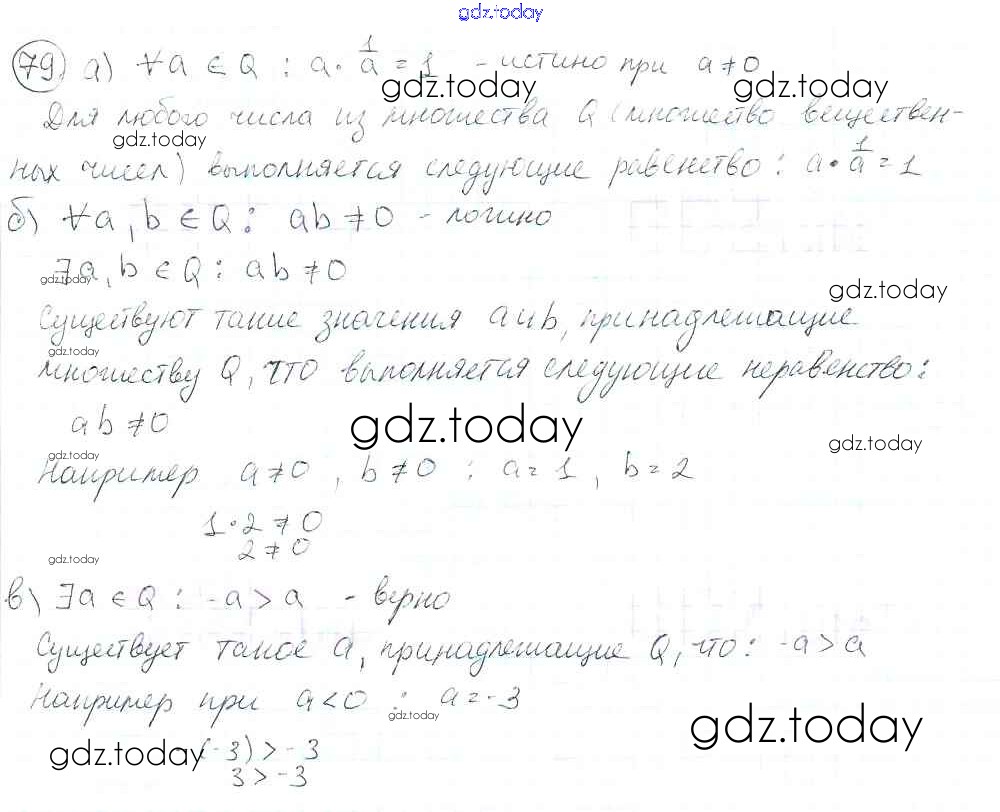 gdz.today
79) а) ∀a ∈ Q : a · 1/a = 1 - истино при a ≠ 0
gdz.today gdz.today
Для любого числа из множества Q (множество веществен-
gdz.today
ных чисел) выполняется следующие равенство: a · 1/a = 1
б) ∀a, b ∈ Q : ab ≠ 0 - логино
∃a, b ∈ Q : ab ≠ 0
gdz.today gdz.today
Существуют такие значения a и b, принадлежащие
gdz.today
множеству Q, что выполняется следующие неравенство:
ab ≠ 0
gdz.today gdz.today
gdz.today
Например a ≠ 0, b ≠ 0 : a = 1, b = 2
1 · 2 ≠ 0
2 ≠ 0
gdz.today
в) ∃a ∈ Q : -a > a - верно
Существует такое a, принадлежащие Q, что: -a > a
Например при a < 0 : a = -3
gdz.today gdz.today
gdz.today -(-3) > -3
3 > -3